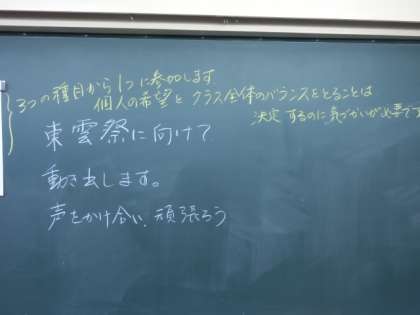 3つの種目から1つに参加します
個人の希望とクラス全体のバランスをとることは
決定するのに気づかいが必要です
東雲祭に向けて
動き出します。
声をかけ合い、頑張ろう